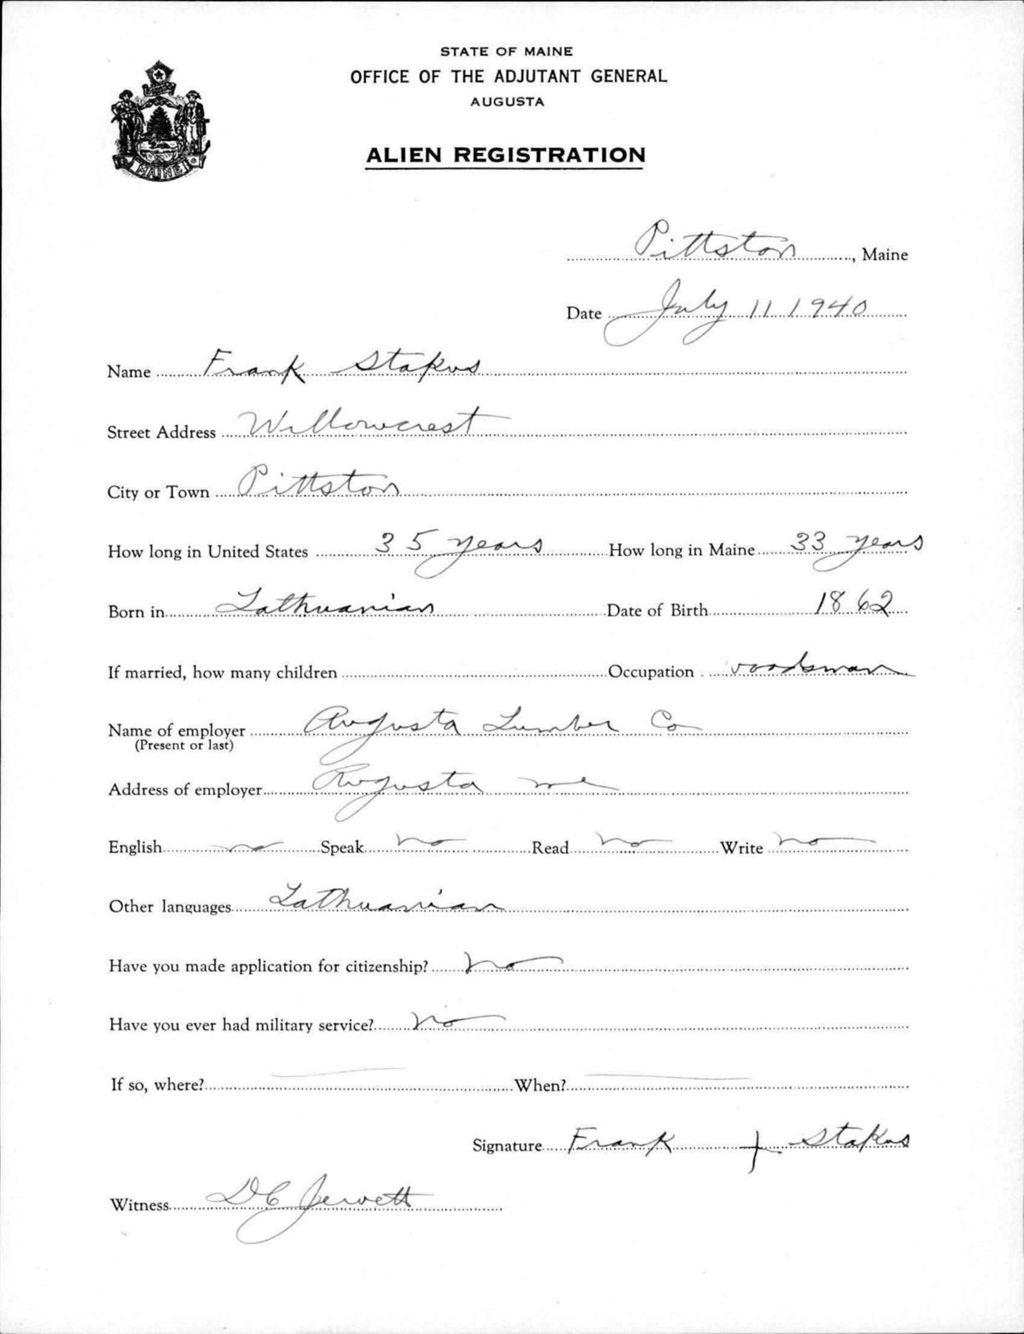 STATE OF MAINE
OFFICE OF THE ADJUTANT GENERAL
AUGUSTA
ALIEN REGISTRATION
MAINE
Pittston, Maine
Date July 11 1940
Name Frank Stakus
Street Address Willowcrest
City or Town Pittston
How long in United States 35 years How long in Maine 33 years
Born in Lathuanian Date of Birth 1862
If married, how many children Occupation woodsman
Name of employer Augusta Lumber Co
(Present or last)
Address of employer Augusta me
English no Speak no Read no Write no
Other languages Lathuanian
Have you made application for citizenship? no
Have you ever had military service? no
If so, where? When?
Signature Frank + Stakus
Witness D C Jewett